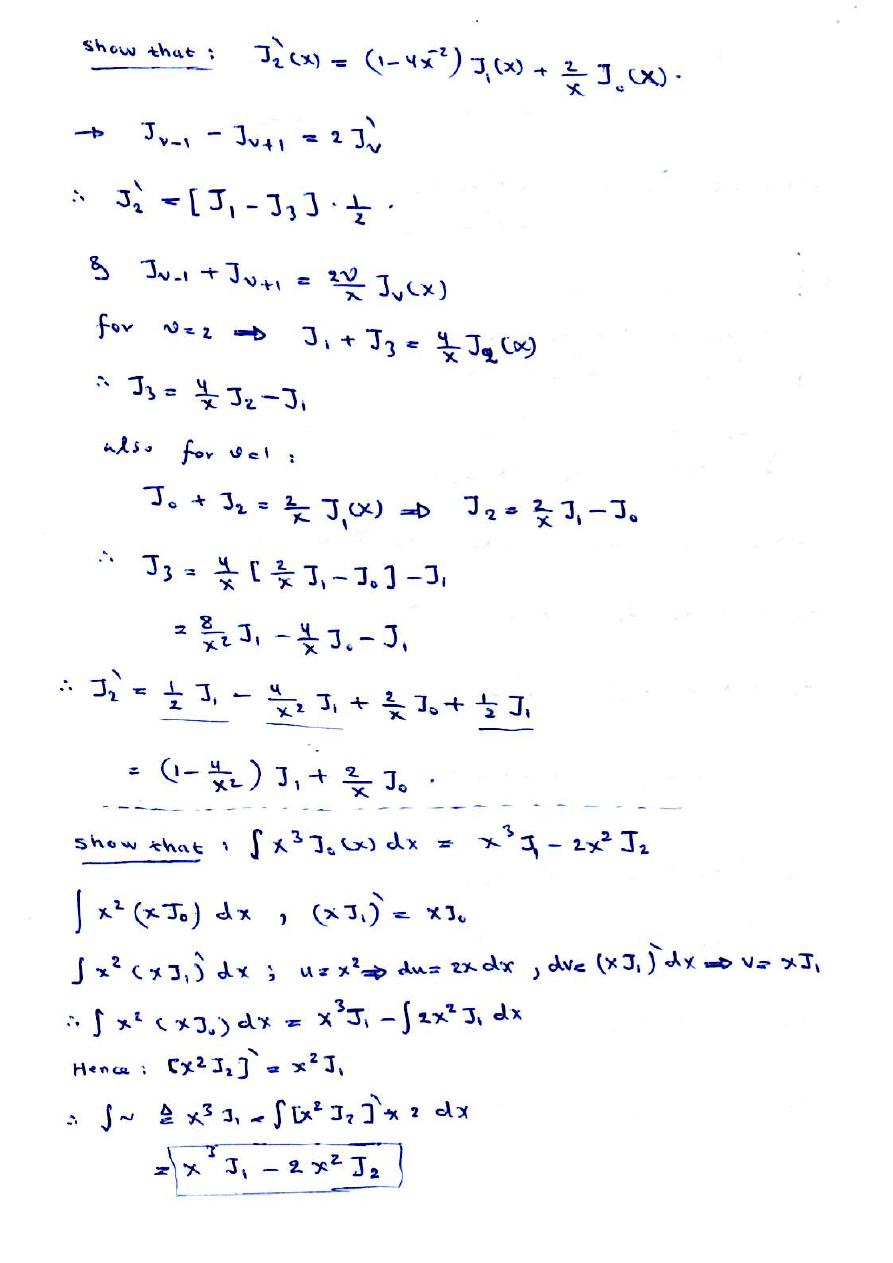 show that : J₂`(x) = (1-4x⁻²) J₁(x) + 2/x J₀(x).
→ Jᵥ₋₁ - Jᵥ₊₁ = 2 Jᵥ`
∴ J₂` = [J₁ - J₃] · 1/2 .
& Jᵥ₋₁ + Jᵥ₊₁ = 2ν/x Jᵥ(x)
for ν=2 ⇒ J₁ + J₃ = 4/x J₂(x)
∴ J₃ = 4/x J₂ - J₁
also for ν=1 :
J₀ + J₂ = 2/x J₁(x) ⇒ J₂ = 2/x J₁ - J₀
∴ J₃ = 4/x [2/x J₁ - J₀] - J₁
= 8/x² J₁ - 4/x J₀ - J₁
∴ J₂` = 1/2 J₁ - 4/x² J₁ + 2/x J₀ + 1/2 J₁
= (1 - 4/x²) J₁ + 2/x J₀ .
show that : ∫ x³ J₀(x) dx = x³ J₁ - 2x² J₂
∫ x² (x J₀) dx , (x J₁)` = x J₀
∫ x² (x J₁)` dx ; u = x² ⇒ du = 2x dx , dv = (x J₁)` dx ⇒ v = x J₁
∴ ∫ x² (x J₀) dx = x³ J₁ - ∫ 2x² J₁ dx
Hence : [x² J₂]` = x² J₁
∴ ∫ ~ ≜ x³ J₁ - ∫ [x² J₂]` * 2 dx
= x³ J₁ - 2 x² J₂